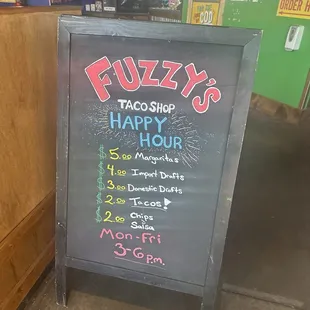 FUZZY'S
TACO SHOP
HAPPY
HOUR
5.00 Margaritas
4.00 Import Drafts
3.00 Domestic Drafts
2.00 Tacos!
2.00 Chips
& Salsa
Mon-Fri
3-6 p.m.
ORDER H